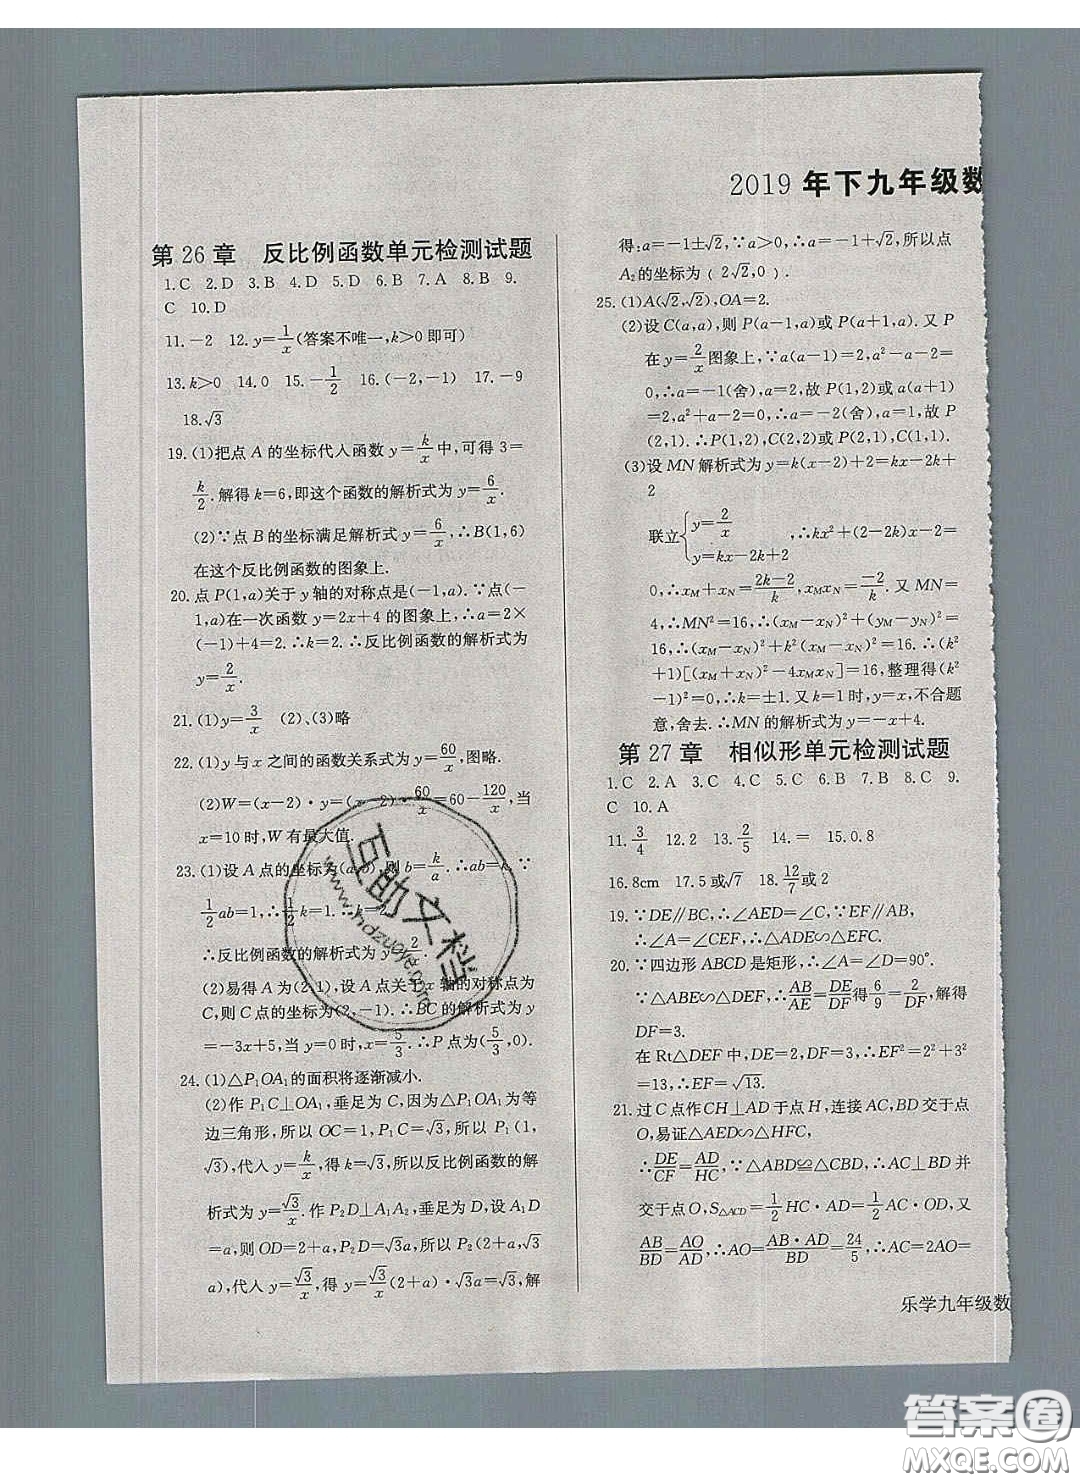 2019 年下九年级数
第 26 章 反比例函数单元检测试题
1.C 2.D 3.B 4.D 5.D 6.B 7.A 8.B 9.
C 10.D
11.-2 12.y=1/x(答案不唯一,k>0 即可)
13.k>0 14.0 15.-1/2 16.(-2,-1) 17.-9
18.√3
19.(1)把点 A 的坐标代人函数 y=k/x中,可得 3=
k/2.解得 k=6,即这个函数的解析式为 y=6/x.
(2)∵点 B 的坐标满足解析式 y=6/x,∴B(1,6)
在这个反比例函数的图象上.
20.点 P(1,a)关于 y 轴的对称点是(-1,a).∵点(
-1,a)在一次函数 y=2x+4 的图象上,∴a=2×
(-1)+4=2.∴k=2.∴反比例函数的解析式为
y=2/x.
21.(1)y=3/x (2)、(3)略
22.(1)y 与 x 之间的函数关系式为 y=60/x,图略.
(2)W=(x-2)·y=(x-2)·60/x=60-120/x,当
x=10 时,W 有最大值.
23.(1)设 A 点的坐标为(a,b),则 b=k/a.∴ab=k,∵
1/2ab=1,∴1/2k=1.∴k=2.
∴反比例函数的解析式为 y=2/x.
(2)易得 A 为(2,1),设 A 点关于 x 轴的对称点为
C,则 C 点的坐标为(2,-1).∴BC 的解析式为 y
=-3x+5,当 y=0 时,x=5/3.∴P 点为(5/3,0).
24.(1)△P₁OA₁的面积将逐渐减小.
(2)作 P₁C⊥OA₁,垂足为 C,因为△P₁OA₁为等
边三角形,所以 OC=1,P₁C=√3,所以 P₁(1,
√3),代入 y=k/x,得 k=√3,所以反比例函数的解
析式为 y=√3/x.作 P₂D⊥A₁A₂,垂足为 D,设 A₁D
=a,则 OD=2+a,P₂D=√3a,所以 P₂(2+a,√3
a),代人 y=√3/x,得 y=√3/x(2+a)·√3a=√3,解
得:a=-1±√2,∵a>0,∴a=-1+√2,所以点
A₂的坐标为 ( 2√2,0 ).
25.(1)A(√2,√2),OA=2.
(2)设 C(a,a),则 P(a-1,a)或 P(a+1,a).又 P
在 y=2/x图象上,∵a(a-1)=2,a²-a-2=
0,∴a=-1(舍),a=2,故 P(1,2)或 a(a+1)
=2,a²+a-2=0,∴a=-2(舍),a=1,故 P
(2,1).∴P(1,2),C(2,2)或 P(2,1),C(1,1).
(3)设 MN 解析式为 y=k(x-2)+2=kx-2k+
2
联立{y=2/x
y=kx-2k+2 ,∴kx²+(2-2k)x-2=
0,∴xM+xN=2k-2/k,xMxN=-2/k.又 MN=
4,∴MN²=16,∴(xM-xN)²+(yM-yN)²=
16,∴(xM-xN)²+k²(xM-xN)²=16.∴(k²
+1)[(xM+xN)²-4xMxN]=16,整理得(k²
-1)²=0,∴k=±1.又 k=1 时,y=x,不合题
意,舍去.∴MN 的解析式为 y=-x+4.
第 27 章 相似形单元检测试题
1.C 2.A 3.C 4.C 5.C 6.B 7.B 8.C 9.
C 10.A
11.3/4 12.2 13.2/5 14.= 15.0.8
16.8cm 17.5 或√7 18.12/7或 2
19.∵DE∥BC,∴∠AED=∠C.∵EF∥AB,
∴∠A=∠CEF,∴△ADE∽△EFC.
20.∵四边形 ABCD 是矩形,∴∠A=∠D=90°.
∵△ABE∽△DEF,∴AB/AE=DE/DF得6/9=2/DF,解得
DF=3.
在 Rt△DEF 中,DE=2,DF=3,∴EF²=2²+3²
=13,∴EF=√13.
21.过 C 点作 CH⊥AD 于点 H,连接 AC,BD 交于点
O,易证△AED∽△HFC,
∴DE/CF=AD/HC.∵△ABD≌△CBD,∴AC⊥BD 并
交于点 O,S△ACD=1/2HC·AD=1/2AC·OD,又
AB/BD=AO/AD,∴AO=AB·AD/BD=24/5,∴AC=2AO=
乐学九年级数
互助文档
www.hdzuoye.com
答案圈
MXQE.COM